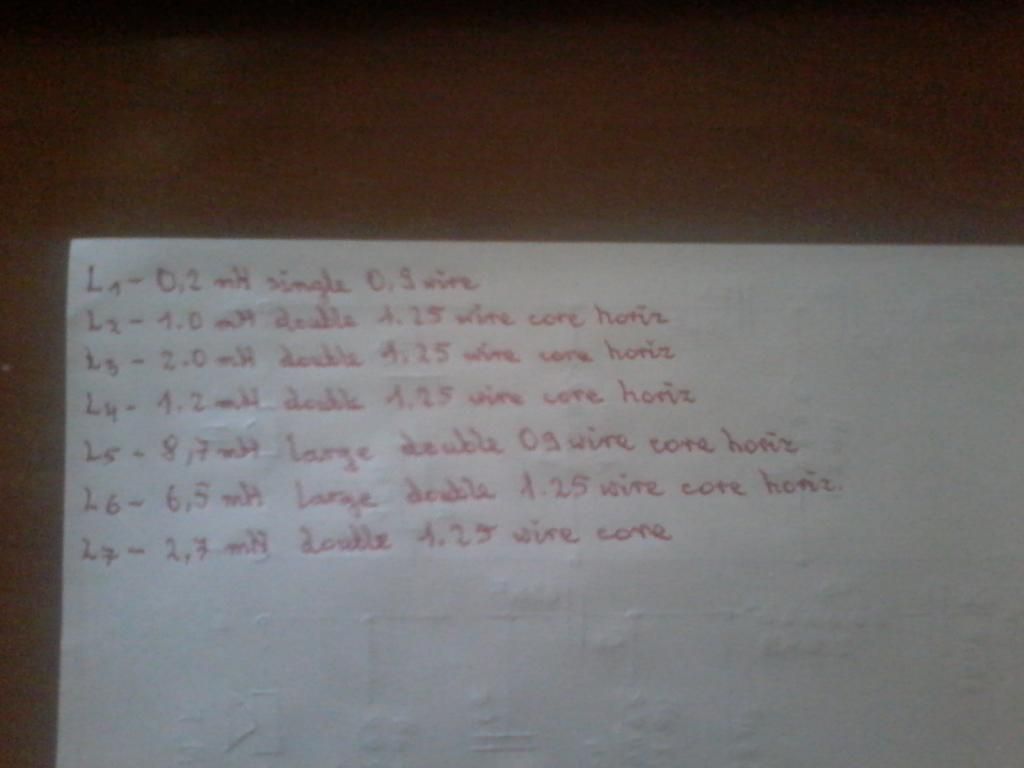 L1 - 0,2 mH single 0,9 wire
L2 - 1.0 mH double 1.25 wire core horiz
L3 - 2.0 mH double 1.25 wire core horiz
L4 - 1.2 mH double 1.25 wire core horiz
L5 - 8,7 mH large double 09 wire core horiz
L6 - 6,5 mH large double 1.25 wire core horiz.
L7 - 2,7 mH double 1.25 wire core